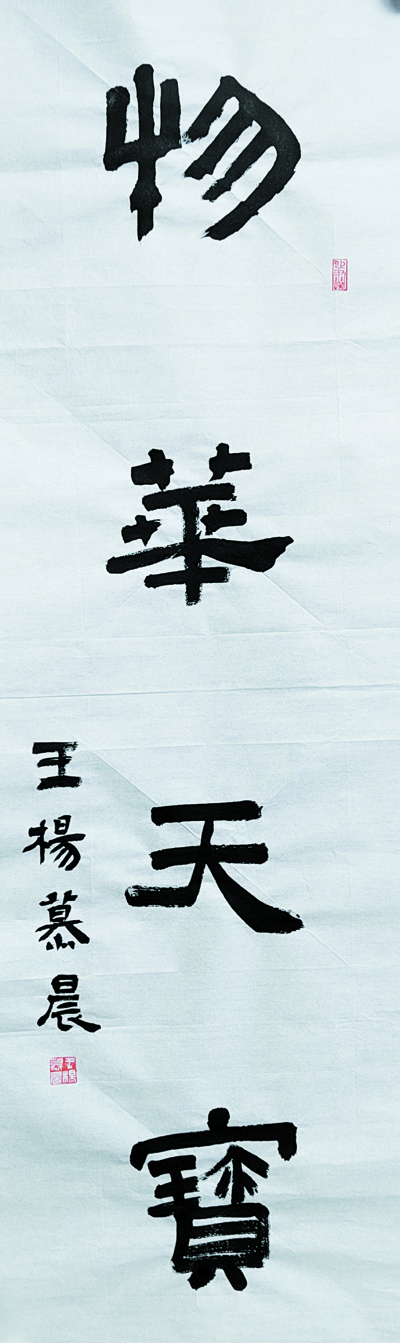 物華天寶
王楊慕晨